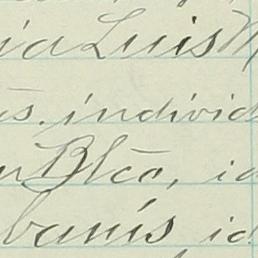 ia Luis M
s. individ
Blco, id
banis id